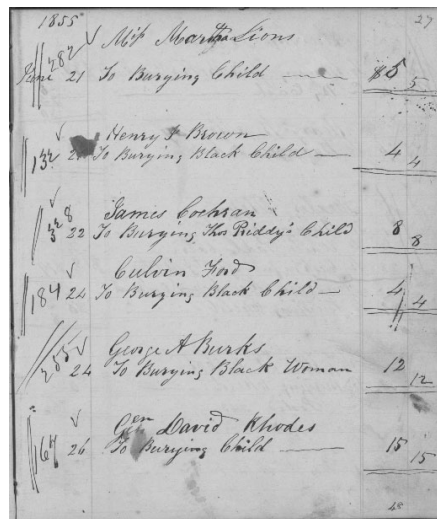 1855 27
282 Miss Martha Lions
June 21 To Burying Child $5 5
Henry J Brown
132 To Burying Black Child 4 4
James Cochran
328 22 To Burying Thos Priddy's Child 8 8
Culvin Ford
184 24 To Burying Black Child 4 4
George A Burks
255 24 To Burying Black Woman 12 12
Gen David Rhodes
167 26 To Burying Child 15 15
48